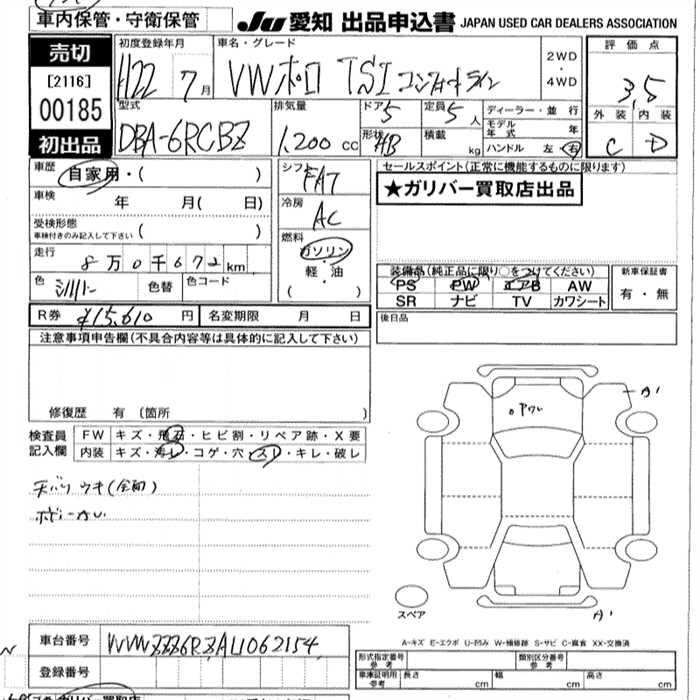 車内保管・守衛保管
JU 愛知 出品申込書 JAPAN USED CAR DEALERS ASSOCIATION
売切
[2116]
00185
初出品
初度登録年月
H22 7月
車名・グレード
VWポロ TSI コンフォートライン
2WD
・
4WD
評価点
3.5
外装 内装
C D
型式
DBA-6RCBZ
排気量
1,200 cc
ドア 5
形状 HB
定員 5人
積載 kg
ディーラー・並 行
モデル年式 年
ハンドル 左・右
車歴
自家用・( )
車検
年 月( 日)
受検形態
車検付きのみ記入して下さい ( )
走行
8万0千672km
色 シルバー 色替 色コード
シフト
FAT
冷房
AC
燃料
ガソリン
・
軽・油
( )
セールスポイント(正常に機能するものに限ります)
★ガリバー買取店出品
装備品(純正品に限り○をつけてください)
PS PW エアB AW
SR ナビ TV カワシート
新車保証書
有・無
R券 ¥15,610 円 名変期限 月 日
後日品
注意事項申告欄(不具合内容等は具体的に記入して下さい)
修復歴 有 〔箇所 〕
検査員記入欄
FW キズ・飛石・ヒビ割・リペア跡・X要
内装 キズ・汚レ・コゲ・穴・スレ・キレ・破レ
天バリ ウキ(全面)
A1
A1
スペア
A-キズ E-エクボ U-凹み W-補修跡 S-サビ C-腐食 XX-交換済
車台番号 WVWZZZ6RZAU062154
登録番号
形式指定番号 参考
類別区分番号 参考
車庫証明用 参考 長さ cm 幅 cm 高さ cm
ガリバー買取店